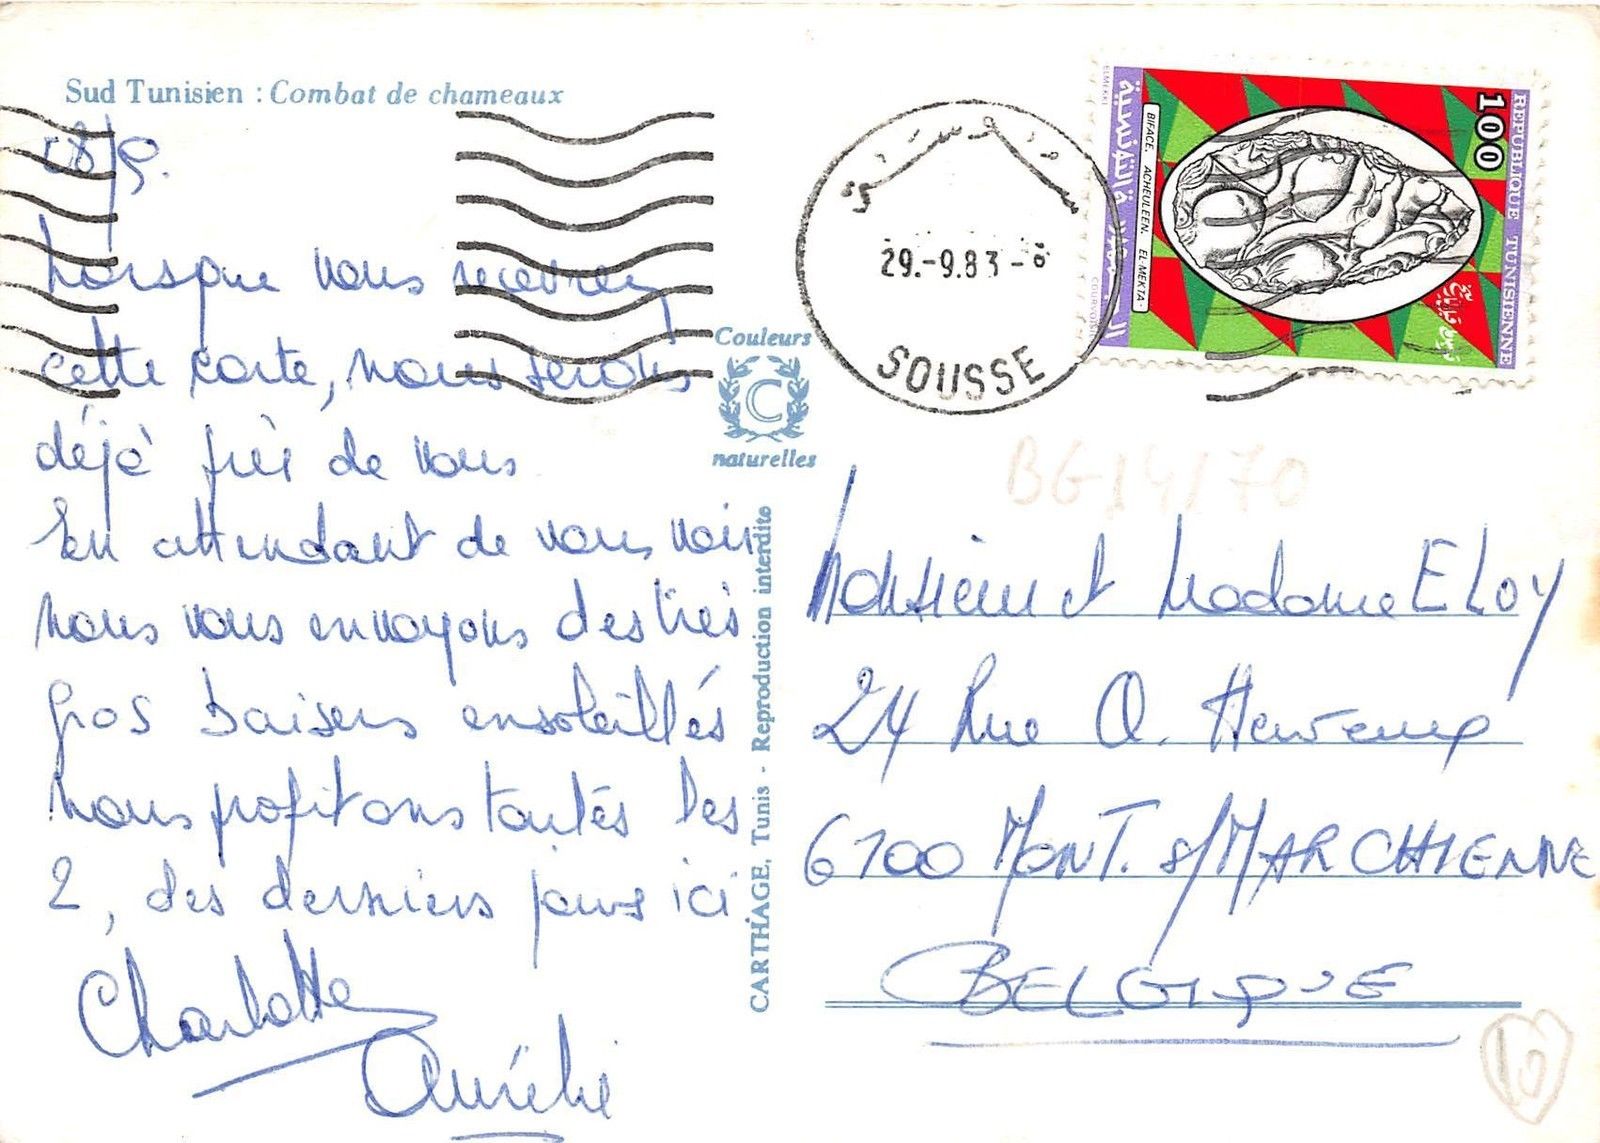 Sud Tunisien : Combat de chameaux
28/9.
Lorsque vous recevrez
cette carte, nous serons
déjà près de vous
En attendant de vous voir
nous vous envoyons des très
gros baisers ensoleillés
nous profitons toutes les
2, des derniers jours ici
Charlotte
Aurélie
Couleurs
C
naturelles
CARTHAGE, Tunis - Reproduction interdite
سوسة
29.-9.83-
SOUSSE
REPUBLIQUE TUNISIENNE
100
BIFACE. ACHEULEEN. EL-MEKTA
ELMEKKI
COURVOISIER
BG14/70
Monsieur et Madame ELOY
24 Rue A.
6100 MONT. s/MARCHIENNE
BELGIQUE
10